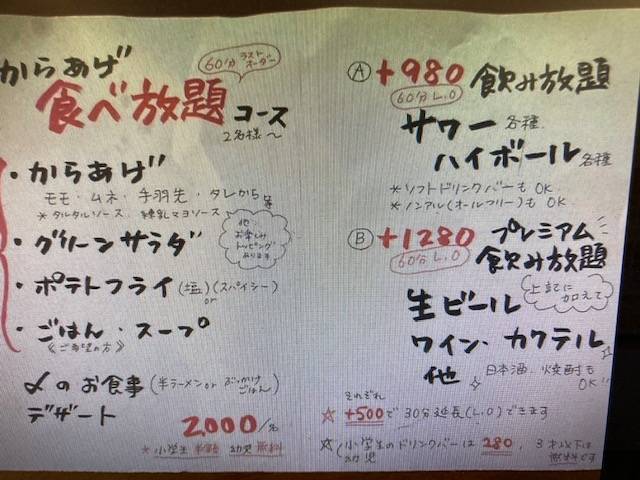 からあげ
60分 ラストオーダー
食べ放題 コース
2名様〜
・からあげ
モモ・ムネ・手羽先・タレから 等
*タルタルソース 練乳マヨソース
他 お楽しみ トッピング あります
・グリーンサラダ
・ポテトフライ (塩) or (スパイシー)
・ごはん・スープ
《ご希望の方》
〆のお食事 (半ラーメン or ぶっかけごはん)
デザート
2,000/名
*小学生 半額 幼児 無料
Ⓐ +980 飲み放題
60分 L.O
サワー 各種
ハイボール 各種
*ソフトドリンクバーも OK
*ノンアル(オールフリー)も OK
Ⓑ +1280 プレミアム
60分 L.O 飲み放題
上記に加えて
生ビール
ワイン・カクテル
他 日本酒・焼酎も OK!!
それぞれ
☆ +500で 30分延長(L.O)できます
☆ (小学生 幼児 のドリンクバーは 280, 3才以下は 無料です